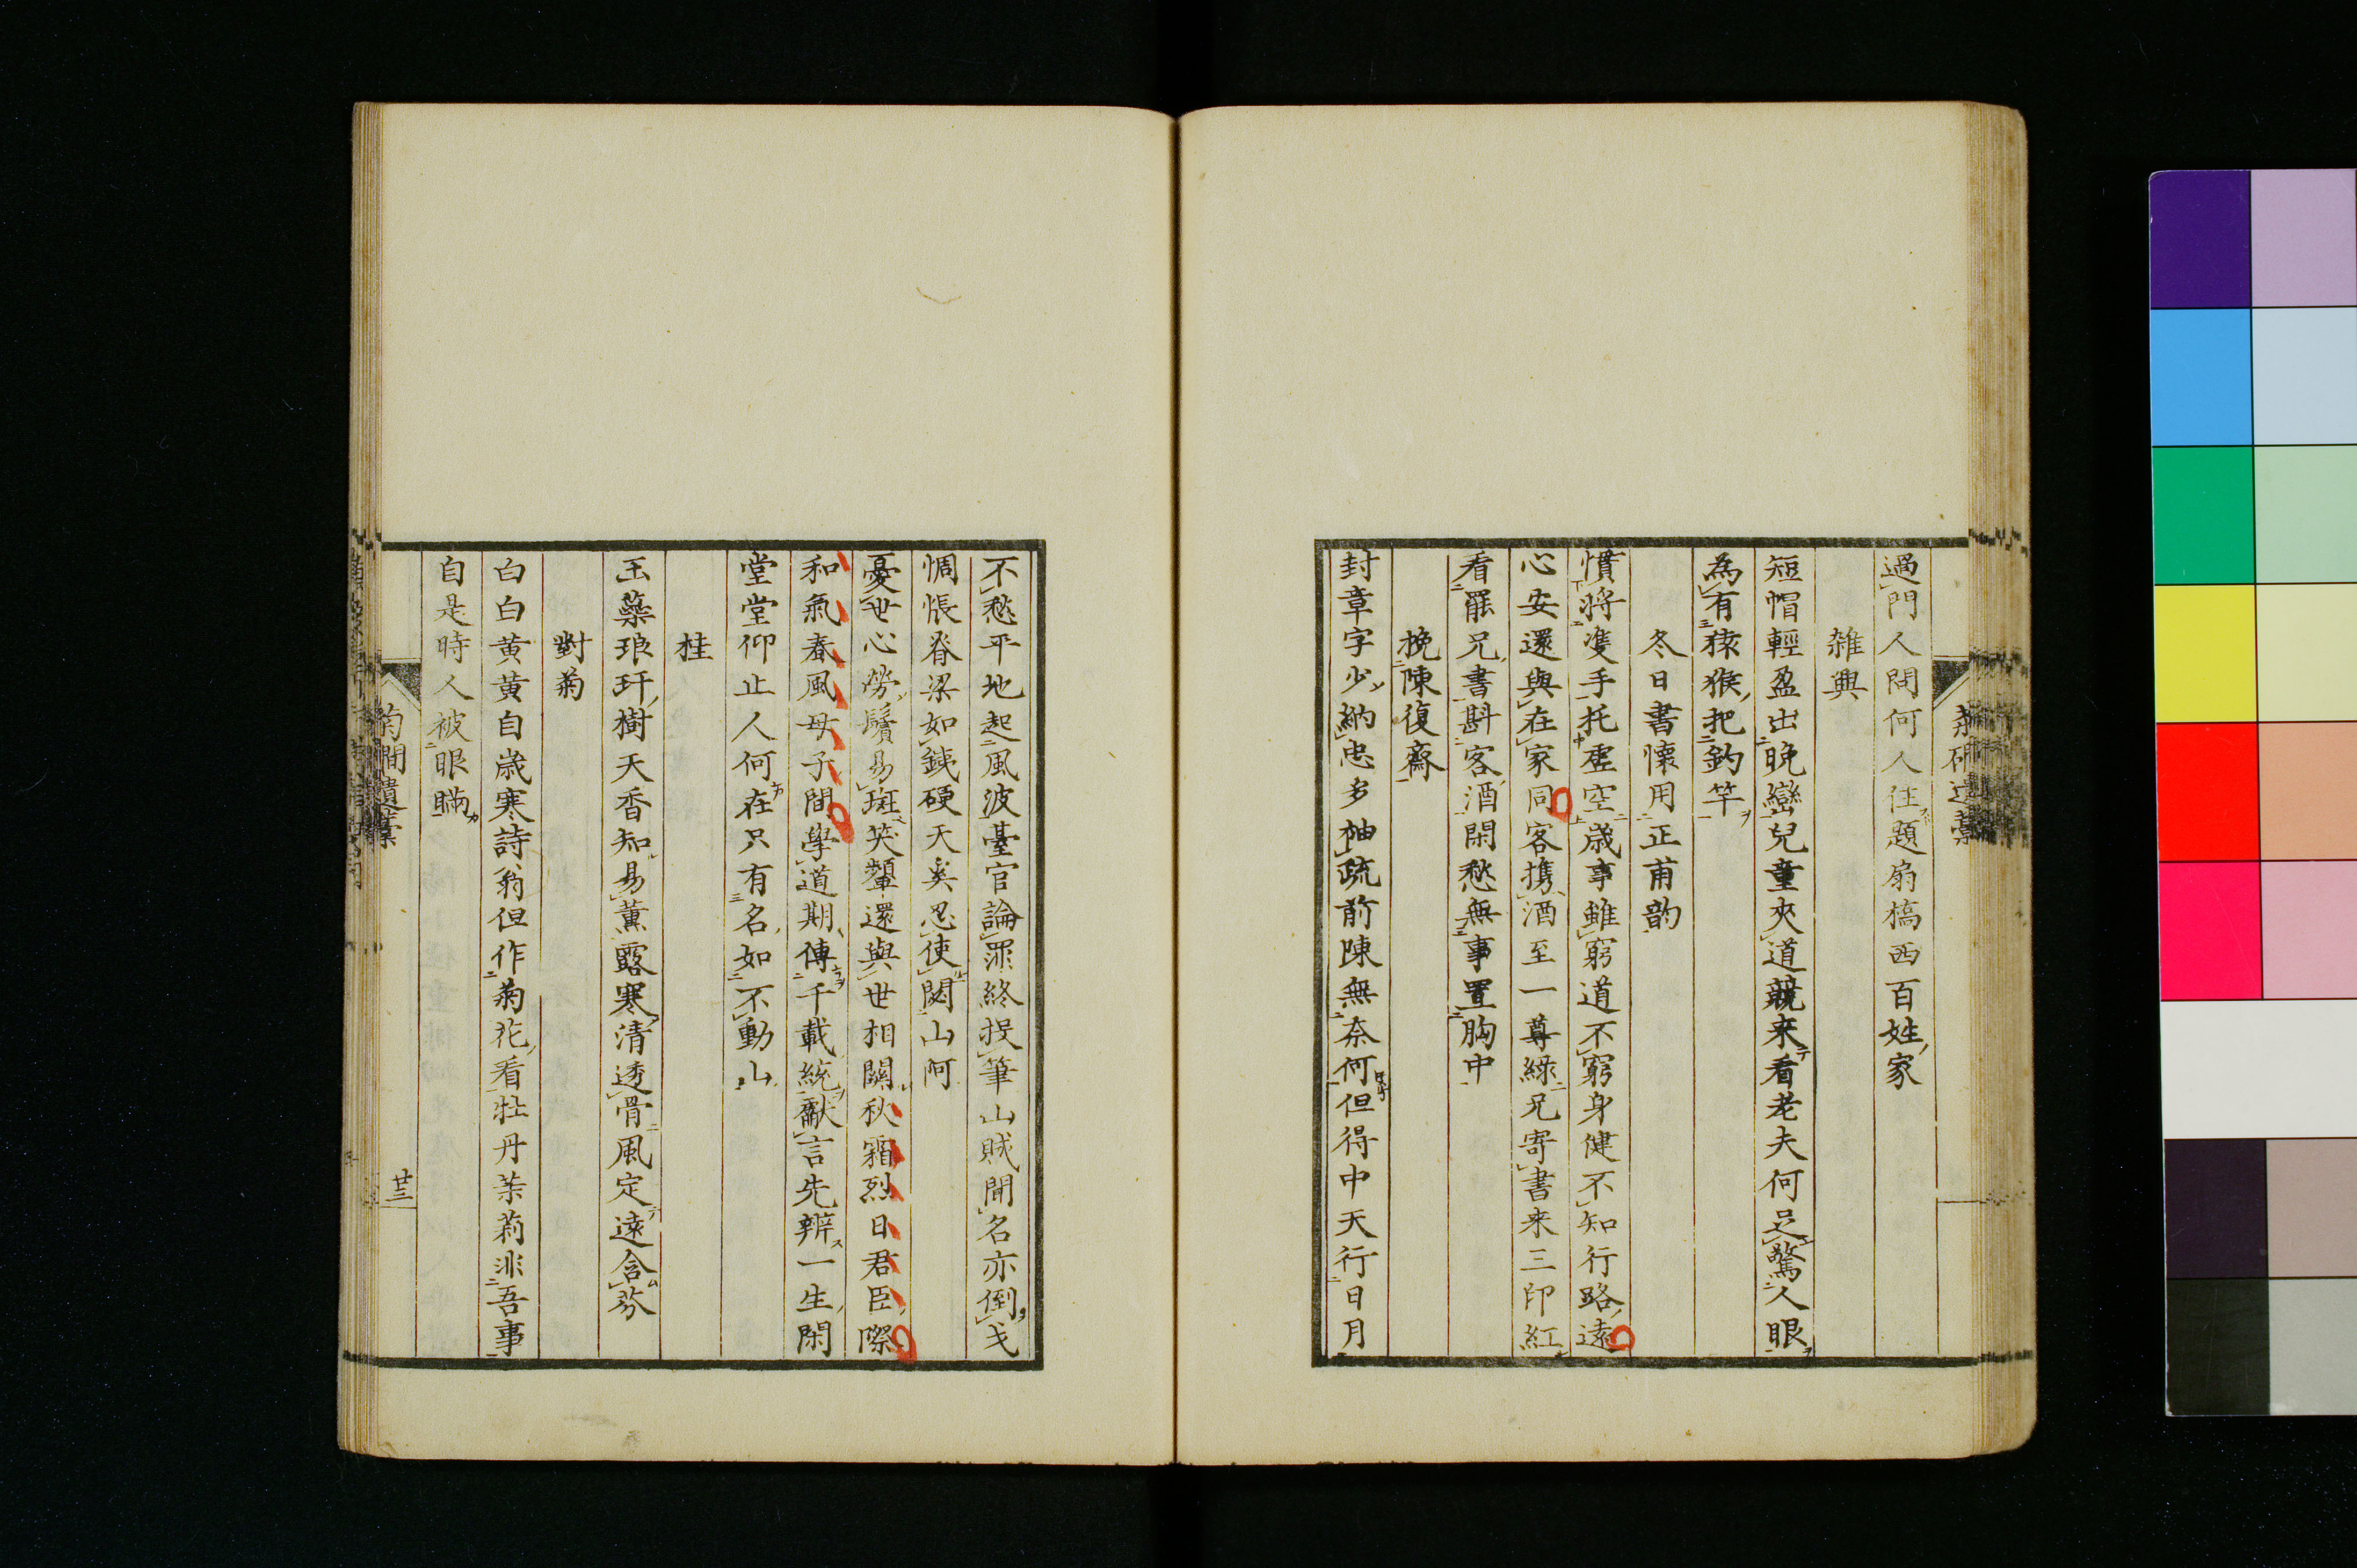 過門人問何人住題扇橋西百姓家
雜興
短帽輕盈出晚巒兒童夾道競来看老夫何足驚人眼
為有猿猴把釣竿
冬日書懐用正甫韵
慣將隻手托虛空歳事雖窮道不窮身健不知行路遠
心安還與在家同客携酒至一尊綠兄寄書来三印紅
看罷兄書斟客酒閑愁無事置胸中
挽陳復齋
封章字少納忠多袖疏前陳無奈何但得中天行日月
不愁平地起風波臺官論罪終投筆山賊聞名亦倒戈
惆悵脊梁如鐵硬天奚忍使閟山阿
憂世心勞鬢易斑笑顰還與世相關秋霜烈日君臣際
和氣春風母子間學道期傳千載統獻言先辨一生閑
堂堂仰止人何在只有名如不動山
桂
玉蘂琅玕樹天香知易薫露寒清透骨風定遠含芬
對菊
白白黄黄自歳寒詩翁但作菊花看牡丹茉莉非吾事
自是時人被眼瞞
菊磵遺藁
廿三